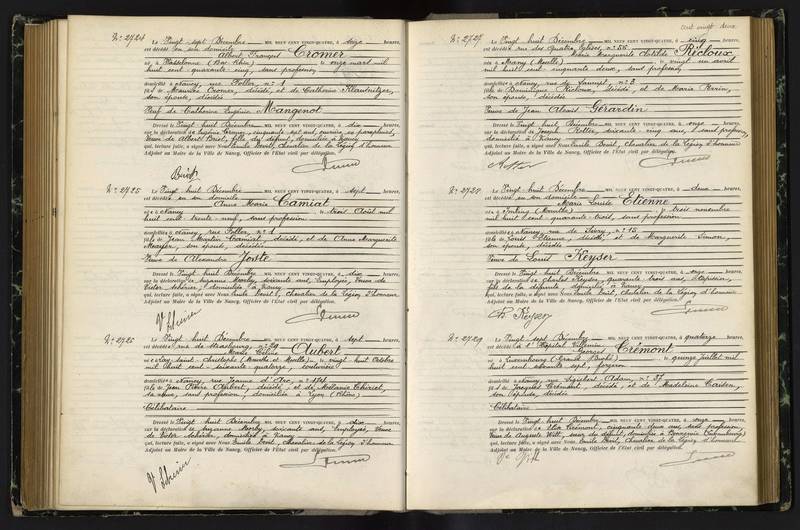 N° 2724
Le Vingt-sept Décembre MIL NEUF CENT VINGT-QUATRE, à seize heures,
est décédé en son domicile
Albert François Cromer
né à Wasselonne (Bas-Rhin) le onze mars mil
huit cent quarante cinq, sans profession
domicilié à Nancy, rue Foller, n° 1
fils de Maurice Cromer, décédé, et de Catherine
son épouse, décédée
Veuf de Catherine Eugénie Mangenot
Dressé le Vingt huit Décembre MIL NEUF CENT VINGT-QUATRE, à dix heures,
sur la déclaration de Eugénie Cromer, cinquante sept ans,
veuve de Albert, fille du défunt, domiciliée à Nancy
qui, lecture faite, a signé avec Nous Emile Boril, Chevalier de la Légion d'honneur
Adjoint au Maire de la Ville de Nancy, Officier de l'État civil par délégation.
N° 2725
Le Vingt huit Décembre MIL NEUF CENT VINGT-QUATRE, à sept heures,
est décédée en son domicile
Anne Marie Camiat
née à Nancy le trois Août mil
huit cent trente-neuf, sans profession
domiciliée à Nancy, rue Foller, n° 1
fille de Jean Martin Camiat, décédé, et de Anne Marguerite
son épouse, décédée
Veuve de Alexandre Joste
Dressé le Vingt-huit Décembre MIL NEUF CENT VINGT-QUATRE, à dix heures,
sur la déclaration de Suzanne, soixante ans, Employée, Veuve de
Victor Scherier, domiciliée à Nancy
qui, lecture faite, a signé avec Nous Emile Boril, Chevalier de la Légion d'honneur
Adjoint au Maire de la Ville de Nancy, Officier de l'État civil par délégation.
N° 2726
Le Vingt huit Décembre MIL NEUF CENT VINGT-QUATRE, à sept heures,
est décédée rue de Strasbourg, n° 29
Marie Céline Aubert
née à Loy-Saint-Christophe (Meurthe et Moselle) le vingt-huit Octobre
mil huit cent soixante-quatorze, couturière
domiciliée à Nancy, rue Jeanne d'Arc, n°
fille de Jean Pierre Aubert, décédé, et de Mélanie Thiriet,
sa veuve, sans profession, domiciliée à Lyon (Rhône)
Célibataire
Dressé le Vingt huit Décembre MIL NEUF CENT VINGT-QUATRE, à dix heures,
sur la déclaration de Suzanne, soixante ans, Employée, Veuve
de Victor Scherier, domiciliée à Nancy
qui, lecture faite, a signé avec Nous Emile Boril, Chevalier de la Légion d'honneur
Adjoint au Maire de la Ville de Nancy, Officier de l'État civil par délégation.
cent vingt deux
N° 2727
Le Vingt huit Décembre MIL NEUF CENT VINGT-QUATRE, à cinq heures,
est décédée rue des Quatre Eglises, n° 56
Marie Marguerite Clotilde Ricloux
née à Marey (Moselle) le vingt un avril
mil huit cent cinquante deux, sans profession
domiciliée à Nancy, rue de, n° 2
fille de Dominique Ricloux, décédé, et de Marie Perrin,
son épouse, décédée
Veuve de Jean Alexis Gérardin
Dressé le Vingt huit Décembre MIL NEUF CENT VINGT-QUATRE, à onze heures,
sur la déclaration de Joseph, soixante cinq ans, sans profession,
domicilié à Nancy
qui, lecture faite, a signé avec Nous Emile Boril, Chevalier de la Légion d'honneur
Adjoint au Maire de la Ville de Nancy, Officier de l'État civil par délégation.
N° 2728
Le Vingt-huit Décembre MIL NEUF CENT VINGT-QUATRE, à deux heures,
est décédée en son domicile
Marie Louise Etienne
née à (Moselle) le trois novembre
mil huit cent quarante-trois, sans profession
domiciliée à Nancy, rue de Sivry, n° 15
fille de Louis Etienne, décédé, et de Marguerite Simon,
son épouse, décédée
Veuve de Louis Keyser
Dressé le Vingt huit Décembre MIL NEUF CENT VINGT-QUATRE, à onze heures,
sur la déclaration de Charles Keyser, quarante trois ans,
fils de la défunte, domicilié à Nancy
qui, lecture faite, a signé avec Nous Emile Boril, Chevalier de la Légion d'honneur
Adjoint au Maire de la Ville de Nancy, Officier de l'État civil par délégation.
Ch. Keyser
N° 2729
Le Vingt-sept Décembre MIL NEUF CENT VINGT-QUATRE, à quatorze heures,
est décédé à l'Hôpital Villemin
Georges Crémont
né à Luxembourg (Grand Duché) le quinze Juillet mil
huit cent soixante sept, forgeron
domicilié à Nancy, rue Sigisbert Adam, n° 37
fils de Jacques Crémont, décédé, et de Madeleine
son épouse, décédée
Célibataire
Dressé le Vingt huit Décembre MIL NEUF CENT VINGT-QUATRE, à onze heures,
sur la déclaration de Crémont, cinquante deux ans, sans profession,
Veuve de Auguste Witt, sœur du défunt, domiciliée à (Luxembourg)
qui, lecture faite, a signé avec Nous Emile Boril, Chevalier de la Légion d'honneur
Adjoint au Maire de la Ville de Nancy, Officier de l'État civil par délégation.